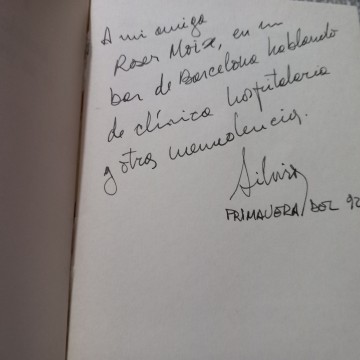 A mi amiga
Roser Moix, en un
bar de Barcelona hablando
de clínica hospitalaria
y otras
Silvia
PRIMAVERA DEL 92